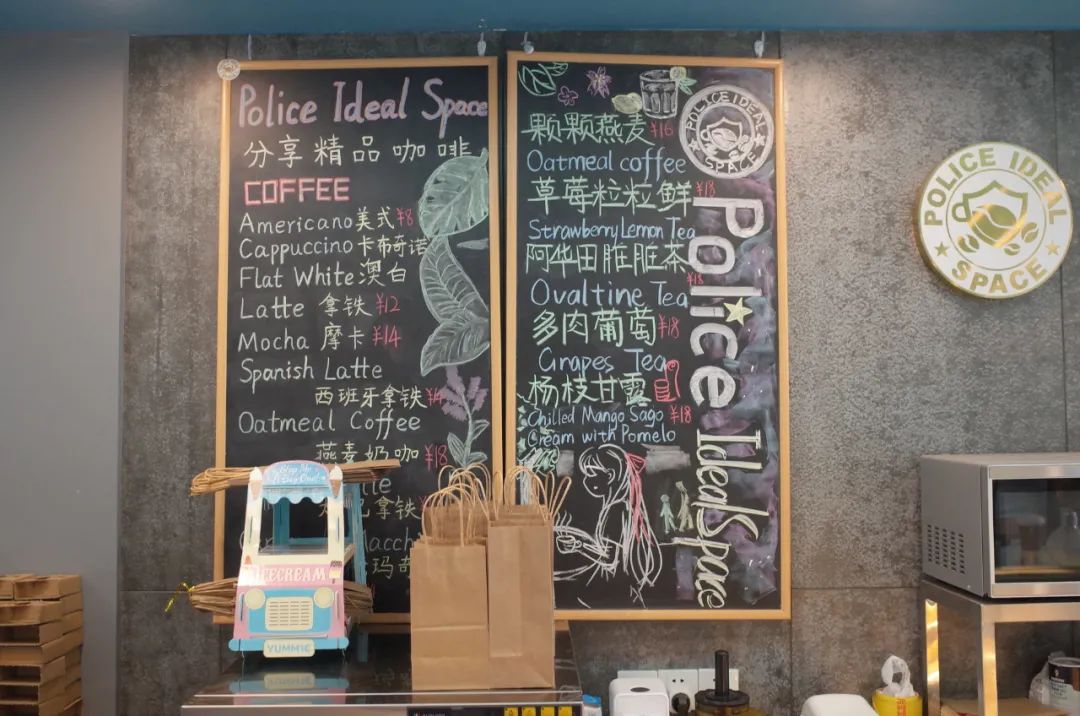 Police Ideal Space
分享精品咖啡
COFFEE
Americano美式¥8
Cappuccino卡布奇诺
Flat White澳白
Latte 拿铁¥12
Mocha 摩卡¥14
Spanish Latte
西班牙拿铁
Oatmeal Coffee
燕麦奶咖¥18
拿铁
Macch
玛奇
颗颗燕麦¥16
Oatmeal coffee
草莓粒粒鲜¥18
Strawberry Lemon Tea
阿华田脏脏茶
¥18
Ovaltine Tea
多肉葡萄¥18
Grapes Tea
杨枝甘露
Chilled Mango Sago ¥18
Cream with Pomelo
POLICE IDEAL
SPACE
Police Ideal Space
POLICE IDEAL
SPACE
ICECREAM
YUMMIE